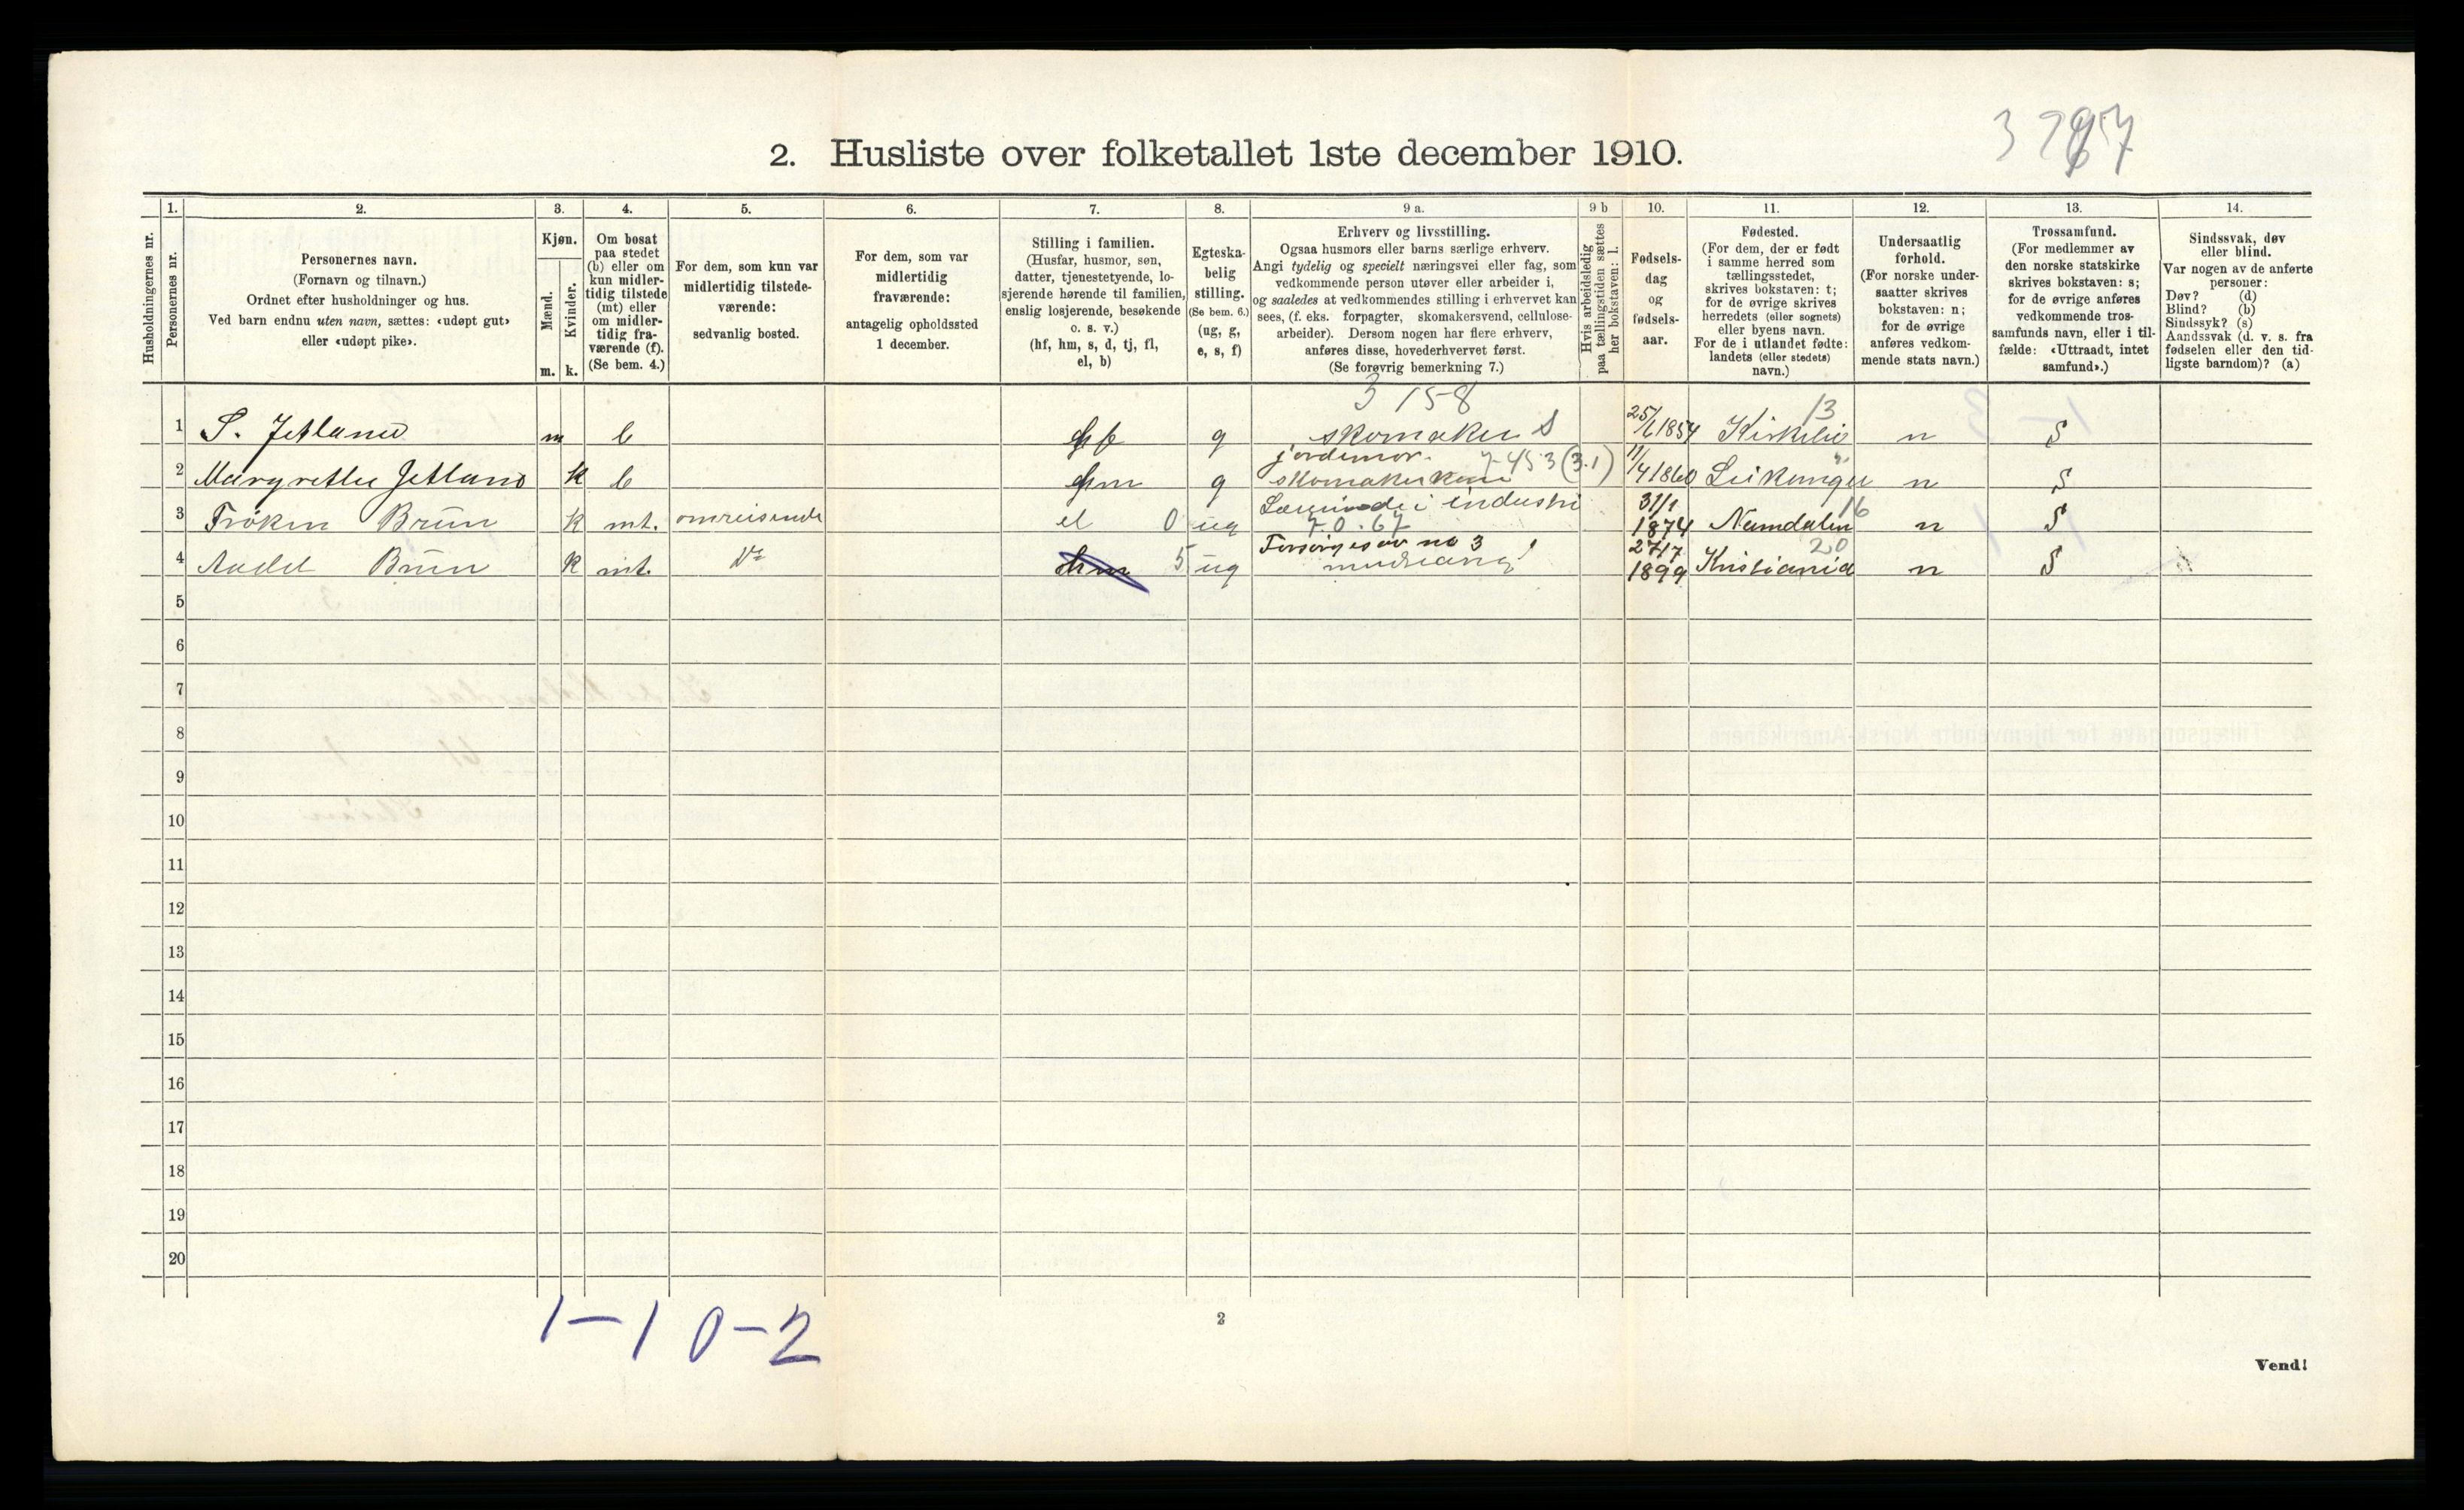 3 7 57
2. Husliste over folketallet 1ste december 1910.
1. 2. 3. 4. 5. 6. 7. 8. 9 a. 9 b 10. 11. 12. 13. 14.
Husholdningernes nr.
Personernes nr.
Personernes navn.
(Fornavn og tilnavn.)
Ordnet efter husholdninger og hus.
Ved barn endnu uten navn, sættes: «udøpt gut»
eller «udøpt pike».
Kjøn.
Mænd.
Kvinder.
m. k.
Om bosat
paa stedet
(b) eller om
kun midler-
tidig tilstede
(mt) eller
om midler-
tidig fra-
værende (f).
(Se bem. 4.)
For dem, som kun var
midlertidig tilstede-
værende:
sedvanlig bosted.
For dem, som var
midlertidig
fraværende:
antagelig opholdssted
1 december.
Stilling i familien.
(Husfar, husmor, søn,
datter, tjenestetyende, lo-
sjerende hørende til familien,
enslig losjerende, besøkende
o. s. v.)
(hf, hm, s, d, tj, fl,
el, b)
Egteska-
belig
stilling.
(Se bem. 6.)
(ug, g,
e, s, f)
Erhverv og livsstilling.
Ogsaa husmors eller barns særlige erhverv.
Angi tydelig og specielt næringsvei eller fag, som
vedkommende person utøver eller arbeider i,
og saaledes at vedkommendes stilling i erhvervet kan
sees, (f. eks. forpagter, skomakersvend, cellulose-
arbeider). Dersom nogen har flere erhverv,
anføres disse, hovederhvervet først.
(Se forøvrig bemerkning 7.)
Hvis arbeidsledig
paa tællingstiden sættes
her bokstaven: l.
Fødsels-
dag
og
fødsels-
aar.
Fødested.
(For dem, der er født
i samme herred som
tællingsstedet,
skrives bokstaven: t;
for de øvrige skrives
herredets (eller sognets)
eller byens navn.
For de i utlandet fødte:
landets (eller stedets)
navn.)
Undersaatlig
forhold.
(For norske under-
saatter skrives
bokstaven: n;
for de øvrige
anføres vedkom-
mende stats navn.)
Trossamfund.
(For medlemmer av
den norske statskirke
skrives bokstaven: s;
for de øvrige anføres
vedkommende tros-
samfunds navn, eller i til-
fælde: «Uttraadt, intet
samfund».)
Sindssvak, døv
eller blind.
Var nogen av de anførte
personer:
Døv? (d)
Blind? (b)
Sindssyk? (s)
Aandssvak (d. v. s. fra
fødselen eller den tid-
ligste barndom)? (a)
3 158 13
1 S. Jetland m b hf g skomaker S 25/6 1854 n S
jordemor. 7-453 (3.1)
2 Margrethe Jetland k b hm g skomakerkone 11/4 1860 Leikanger n S
3 Frøken Brun k mt. omreisende el 0 ug Lærerinde i industri 7.0.67 31/1 1874 Namdalen 16 n S
4 Brun k mt. Do hm 5 ug Forsørges av no 3 27/7 1899 Kristiania 20 n S
5
6
7
8
9
10
11
12
13
14
15
16
17
18
19
20
1-1 0-2
2
Vend!